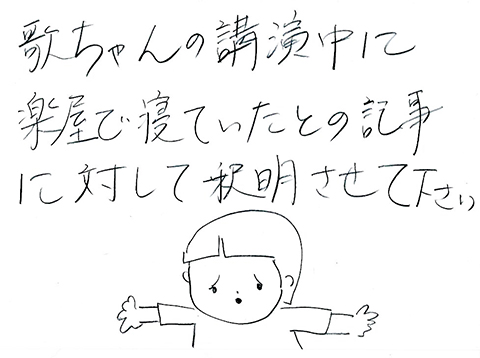 歌ちゃんの講演中に
楽屋で寝ていたとの記事
に対して釈明させて下さい